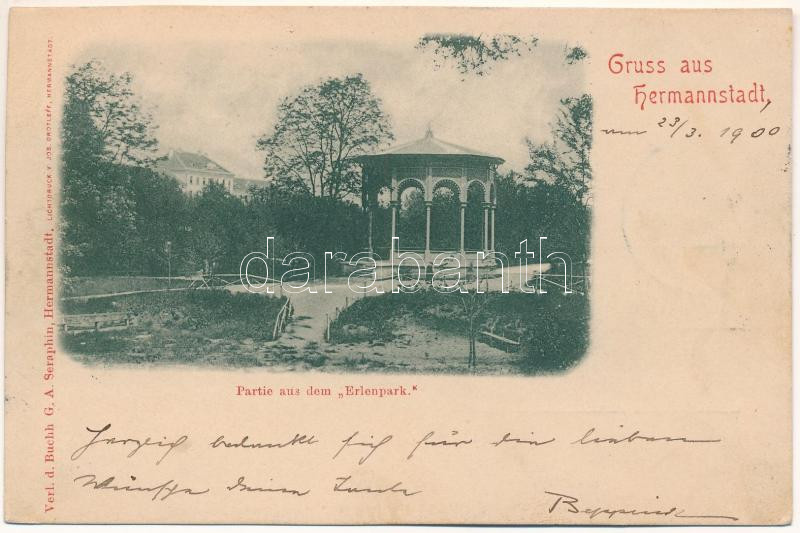 Gruss aus
Hermannstadt,
am 23/3. 1900
LICHTDRUCK V. JOS. DROTLEFF, HERMANNSTADT.
Verl. d. Buchh G. A. Seraphin, Hermannstadt.
darabanth
Partie aus dem „Erlenpark.“
Herzlich bedankt sich für die lieben
Wünsche deine Tante